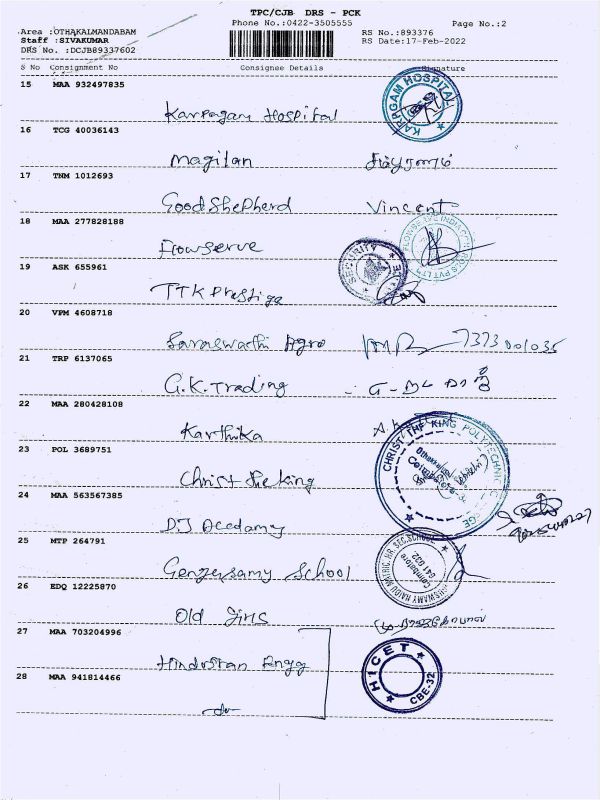 TPC/CJB DRS - PCK
Phone No.:0422-3505555
Page No.:2
Area :OTHAKALMANDABAM
Staff :SIVAKUMAR
DRS No. :DCJB89337602
RS No.:893376
RS Date:17-Feb-2022
S No Consignment No Consignee Details Signature
15 MAA 932497835
Karpagam Hospital
KARPAGAM HOSPITAL
16 TCG 40036143
Magilan
17 TNM 1012693
GoodShepherd Vincent
18 MAA 277828188
Flowserve
19 ASK 655961
SECURITY
TTK Prestige
20 VPM 4608718
Saraswathi Agro 7373001035
21 TRP 6137065
G.K.Trading
22 MAA 280428108
Karthika
23 POL 3689751
CHRIST THE KING POLYTECHNIC
Christ the king
24 MAA 563567385
DJ Accdamy
25 MTP 264791
Gengusamy School
MATRIC. HR. SEC. SCHOOL
Coimbatore
641 032
26 EDQ 12225870
Old Jins
27 MAA 703204996
Hindustan Engg
HICET
CBE-32
28 MAA 941814466
-do-